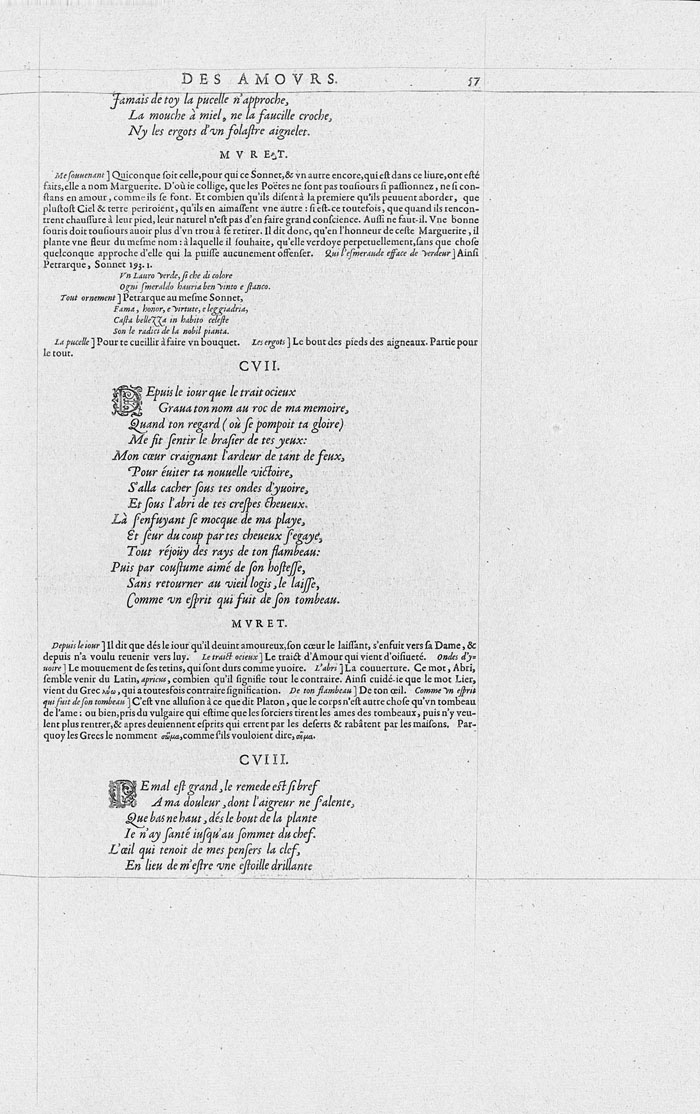 DES AMOVRS. 57
Jamais de toy la pucelle n'approche,
La mouche à miel, ne la faucille croche,
Ny les ergots d'vn folaſtre aignelet.
MVRET.
Me ſouuenant ] Quiconque ſoit celle, pour qui ce Sonnet, & vn autre encore, qui eſt dans ce liure, ont eſté
faits, elle a nom Marguerite. D'où ie collige, que les Poëtes ne ſont pas touſiours ſi paſſionnez, ne ſi con-
ſtans en amour, comme ils ſe font. Et combien qu'ils diſent à la premiere qu'ils peuuent aborder, que
pluſtoſt Ciel & terre periroient, qu'ils en aimaſſent vne autre : ſi eſt-ce toutefois, que quand ils rencon-
trent chauſſure à leur pied, leur naturel n'eſt pas d'en faire grand conſcience. Auſſi ne faut-il. Vne bonne
ſouris doit touſiours auoir plus d'vn trou à ſe retirer. Il dit donc, qu'en l'honneur de ceſte Marguerite, il
plante vne fleur du meſme nom : à laquelle il ſouhaite, qu'elle verdoye perpetuellement, ſans que choſe
quelconque approche d'elle qui la puiſſe aucunement offenſer. Qui l'eſmeraude efface de verdeur ] Ainſi
Petrarque, Sonnet 193. 1.
Vn Lauro verde, ſi che di colore
Ogni ſmeraldo hauria ben vinto e ſtanco.
Tout ornement ] Petrarque au meſme Sonnet,
Fama, honor, e virtute, e leggiadria,
Caſta bellezza in habito celeſte
Son le radici de la nobil pianta.
La pucelle ] Pour te cueillir à faire vn bouquet. Les ergots ] Le bout des pieds des aigneaux. Partie pour
le tout.
CVII.
DEpuis le iour que le trait ocieux
Graua ton nom au roc de ma memoire,
Quand ton regard (où ſe pompoit ta gloire)
Me fit ſentir le braſier de tes yeux:
Mon cœur craignant l'ardeur de tant de feux,
Pour éuiter ta nouuelle victoire,
S'alla cacher ſous tes ondes d'yuoire,
Et ſous l'abri de tes creſpes cheueux.
Là ſ'enfuyant ſe mocque de ma playe,
Et ſeur du coup par tes cheueux ſ'egaye,
Tout réjoüy des rays de ton flambeau:
Puis par couſtume aimé de ſon hoſteſſe,
Sans retourner au vieil logis, le laiſſe,
Comme vn eſprit qui fuit de ſon tombeau.
MVRET.
Depuis le iour ] Il dit que dés le iour qu'il deuint amoureux, ſon cœur le laiſſant, s'enfuit vers ſa Dame, &
depuis n'a voulu reuenir vers luy. Le traict ocieux ] Le traict d'Amour qui vient d'oiſiueté. Ondes d'y-
uoire ] Le mouuement de ſes tetins, qui ſont durs comme yuoire. L'abri ] La couuerture. Ce mot, Abri,
ſemble venir du Latin, apricus, combien qu'il ſignifie tout le contraire. Ainſi cuidé-ie que le mot Lier,
vient du Grec λύω, qui a toutesfois contraire ſignification. De ton flambeau ] De ton œil. Comme vn eſprit
qui fuit de ſon tombeau ] C'eſt vne alluſion à ce que dit Platon, que le corps n'eſt autre choſe qu'vn tombeau
de l'ame : ou bien, pris du vulgaire qui eſtime que les ſorciers tirent les ames des tombeaux, puis n'y veu-
lent plus rentrer, & apres deuiennent eſprits qui errent par les deſerts & rabâtent par les maiſons. Par-
quoy les Grecs le nomment σῶμα, comme ſ'ils vouloient dire, σῆμα.
CVIII.
LE mal eſt grand, le remede eſt ſi bref
A ma douleur, dont l'aigreur ne ſ'alente,
Que bas ne haut, dés le bout de la plante
Ie n'ay ſanté iuſqu'au ſommet du chef.
L'œil qui tenoit de mes penſers la clef,
En lieu de m'eſtre vne eſtoille drillante